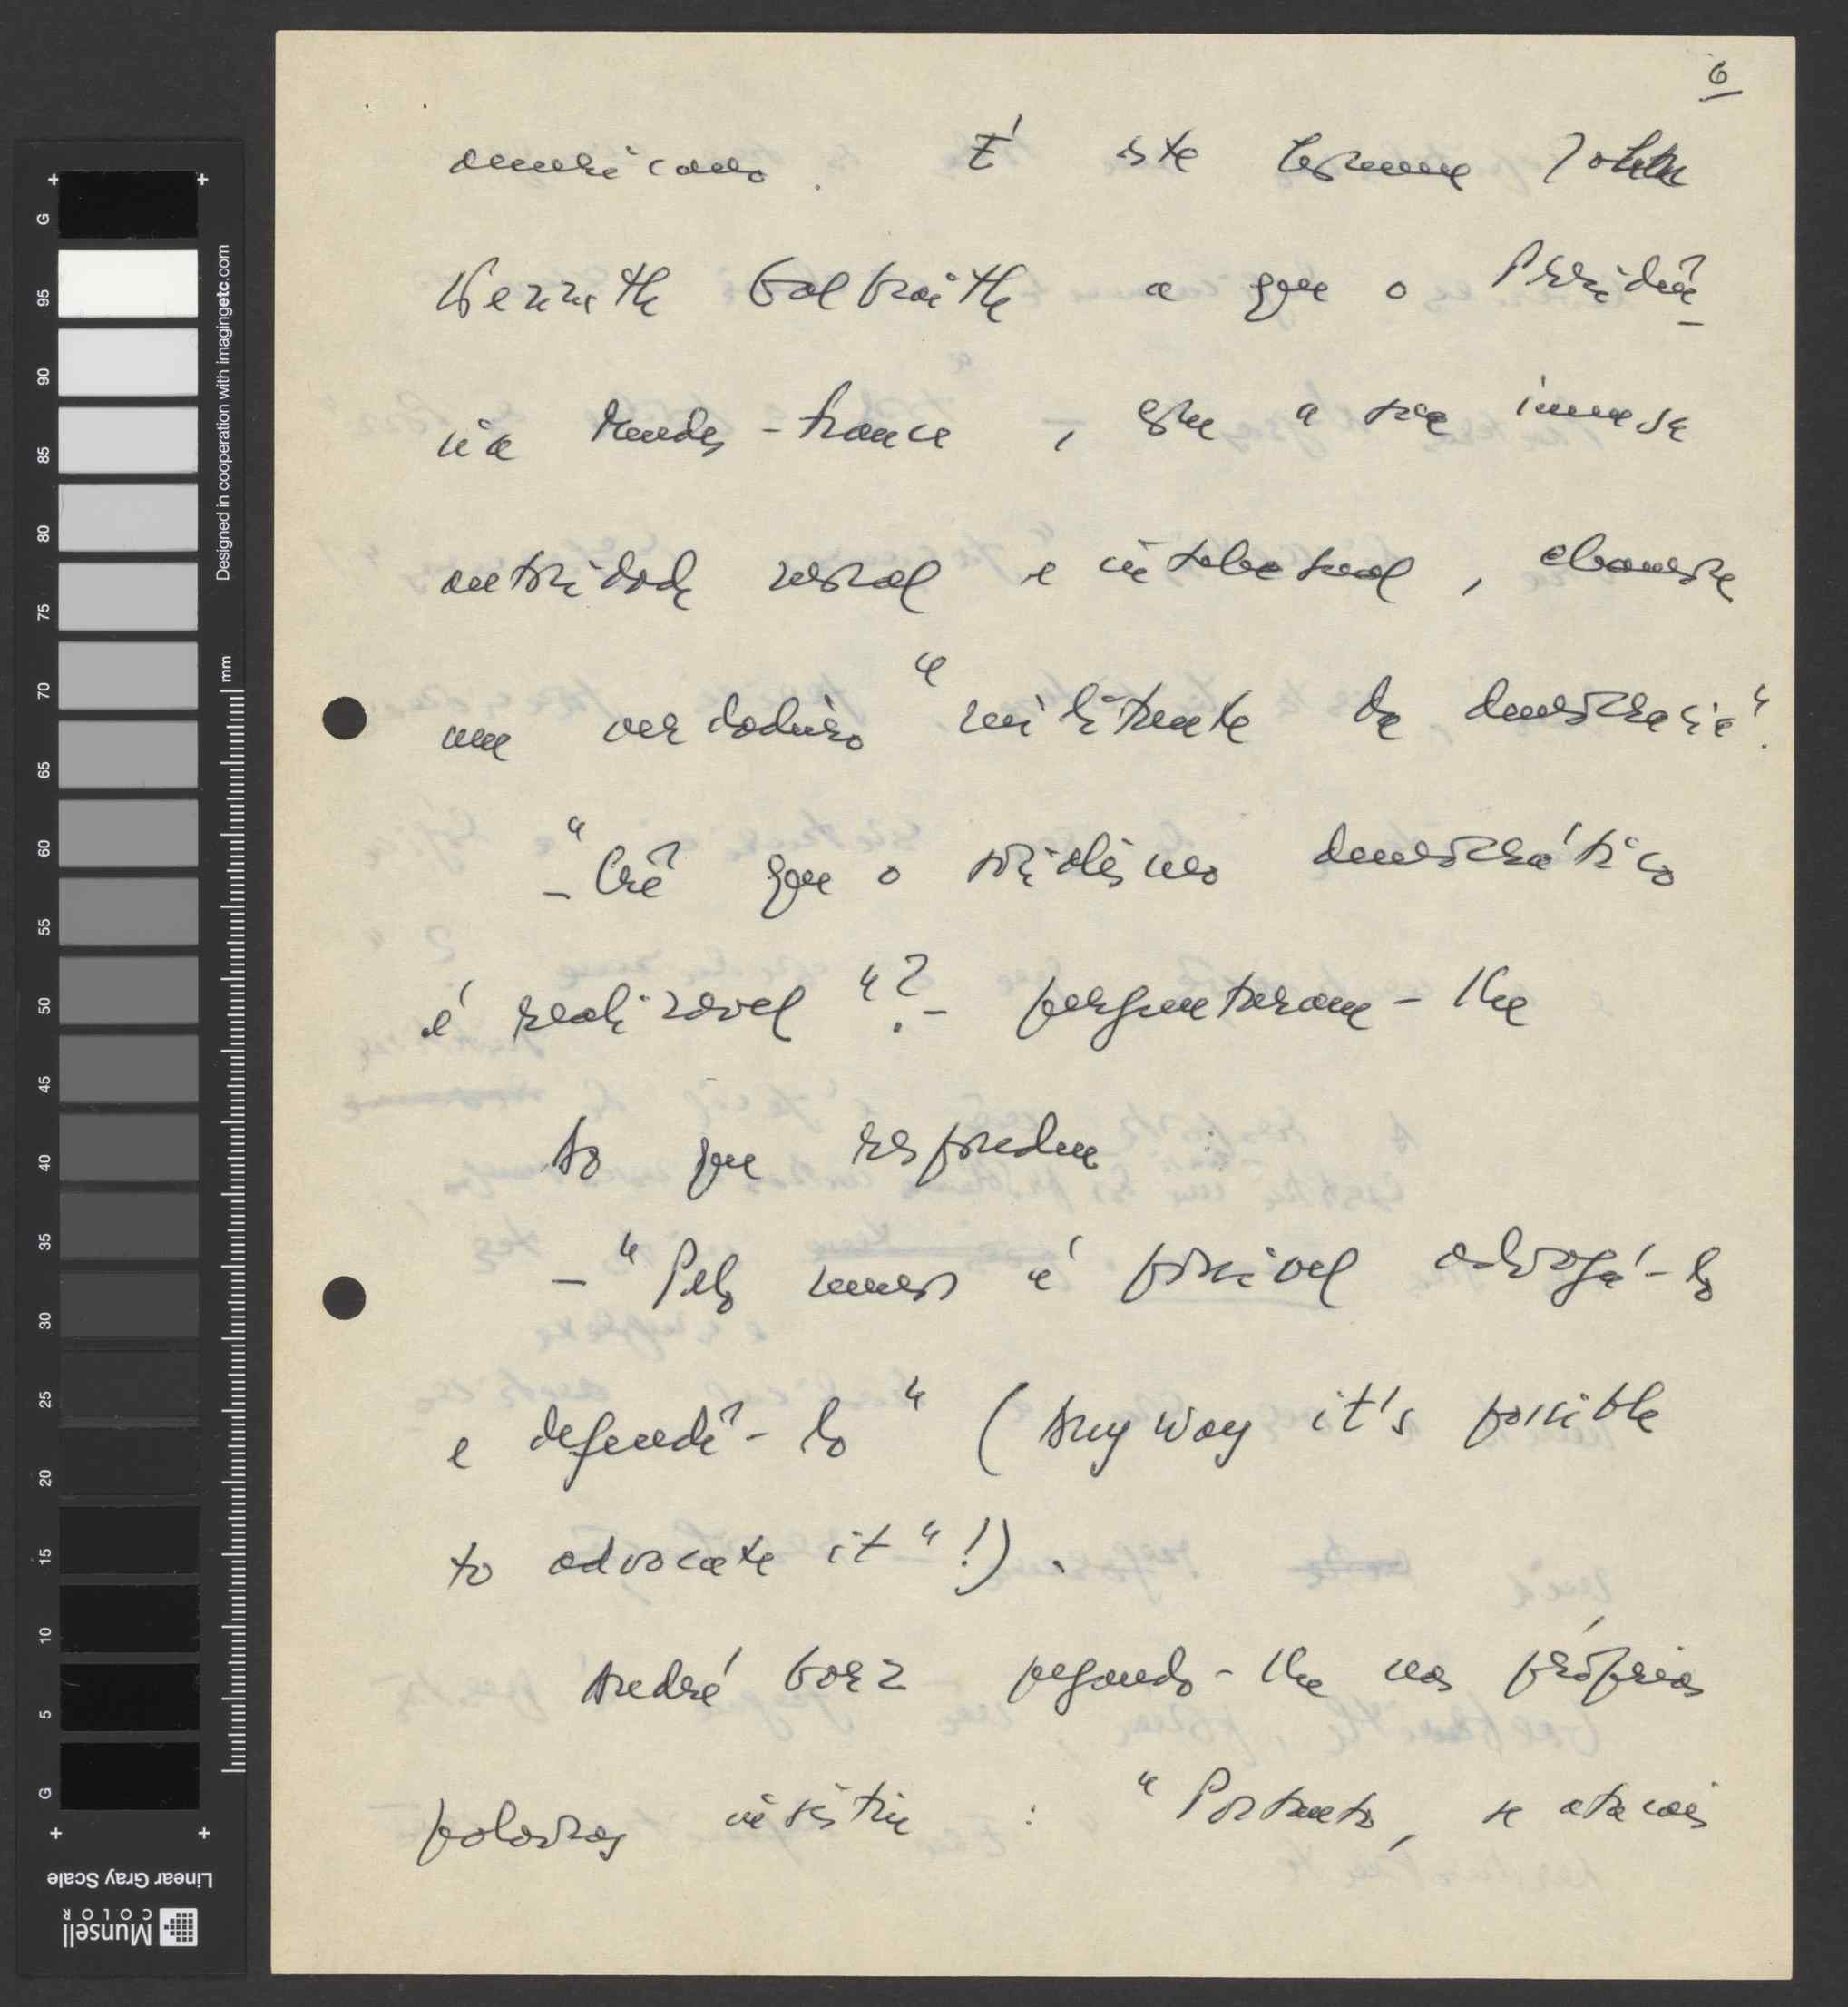 6
americano. É este mesmo John
Kenneth Galbraith a que o Presidên-
cia Mendes-France, que a sua imensa
autoridade moral e intelectual, chamou
um verdadeiro "militante da democracia".
- "Crê que o socialismo democrático
é realizável"? - perguntaram-lhe
Ao que respondeu
- "Pelo menos é possível advogá-lo
e defendê-lo" (Anyway it's possible
to advocate it"!).
André Gorz pegando-lhe nas próprias
palavras insistiu : "Portanto, se
G 95 90 85 80 75 70 65 60 55 50 45 40 35 30 25 20 15 10 5 G
Designed in cooperation with imagingetc.com
mm
Linear Gray Scale
Munsell
COLOR